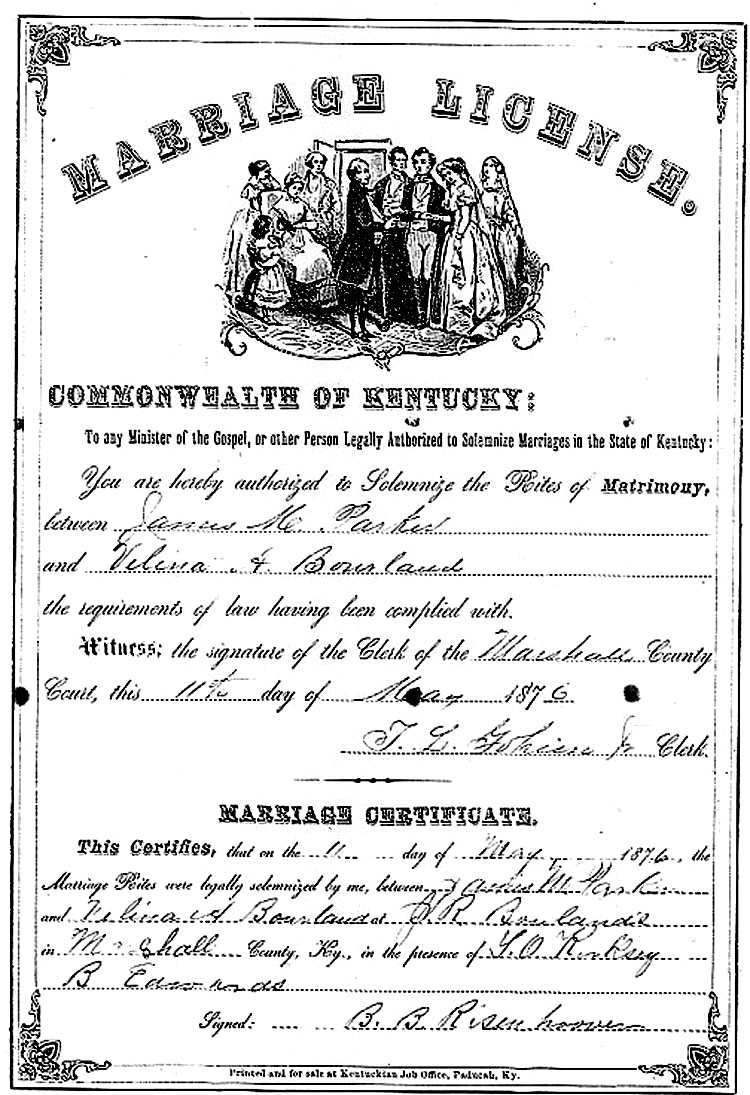 MARRIAGE LICENSE.
COMMONWEALTH OF KENTUCKY:
To any Minister of the Gospel, or other Person Legally Authorized to Solemnize Marriages in the State of Kentucky:
You are hereby authorized to Solemnize the Rites of Matrimony,
between James M. Parker
and Velina A. Bourland
the requirements of law having been complied with.
Witness; the signature of the Clerk of the Marshall County
Court, this 11th day of May 1876
T. L. Clerk.
MARRIAGE CERTIFICATE.
This Certifies, that on the 11 day of May 1876, the
Marriage Rites were legally solemnized by me, between James M Parker
and Velina A Bourland at J R Bourlands
in Marshall County, Ky., in the presence of Kirksey
B Edwards
Signed: B. B. Risenhoover
Printed and for sale at Kentuckian Job Office, Paducah, Ky.